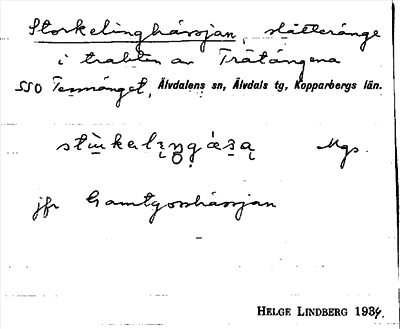 Storkelinghässjan, slätteränge
i trakten av Trätängena
SSO Tenmånget, Älvdalens sn, Älvdals tg, Kopparbergs län.
Mgs.
jfr Gamtgosshässjan
HELGE LINDBERG 1934.